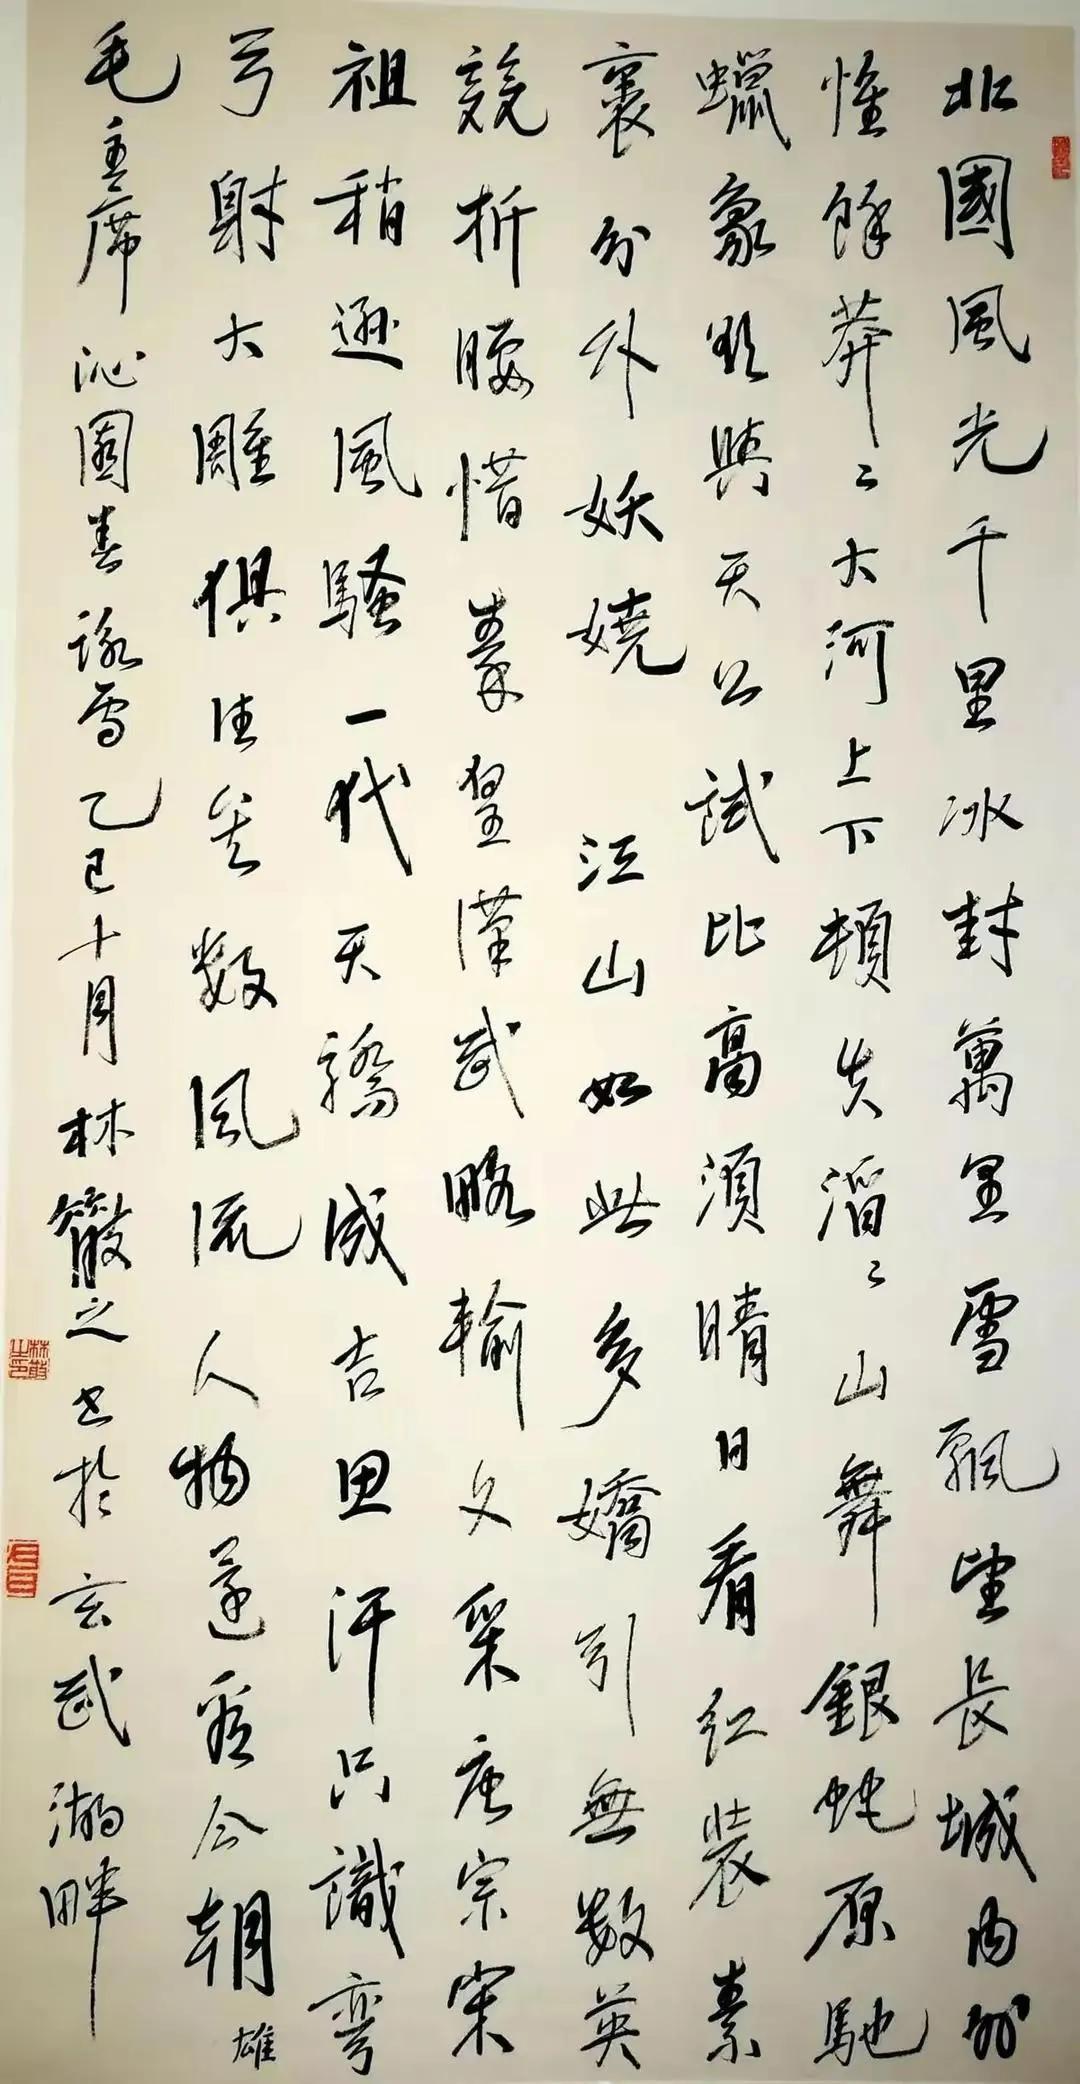 北國風光千里冰封萬里雪飄望長城内外
惟餘莽〻大河上下頓失滔〻山舞銀蛇原馳
蠟象欲與天公試比高須晴日看紅裝素
裹分外妖嬈江山如此多嬌引無数英
競折腰惜秦皇漢武略輸文采唐宗宋
祖稍遜風騷一代天驕成吉思汗只識彎
弓射大雕俱往矣数風流人物還看今朝 雄
毛主席沁園春詠雪乙巳十月林散之书於玄武湖畔
林散之印